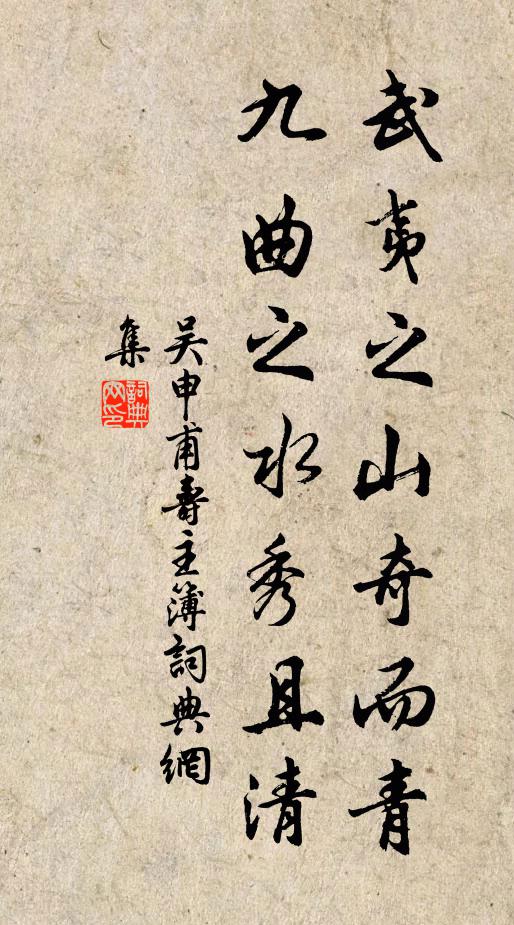 武夷之山奇而青
九曲之水秀且清
吴申甫壽主簿詞典網
集
詞典
网印